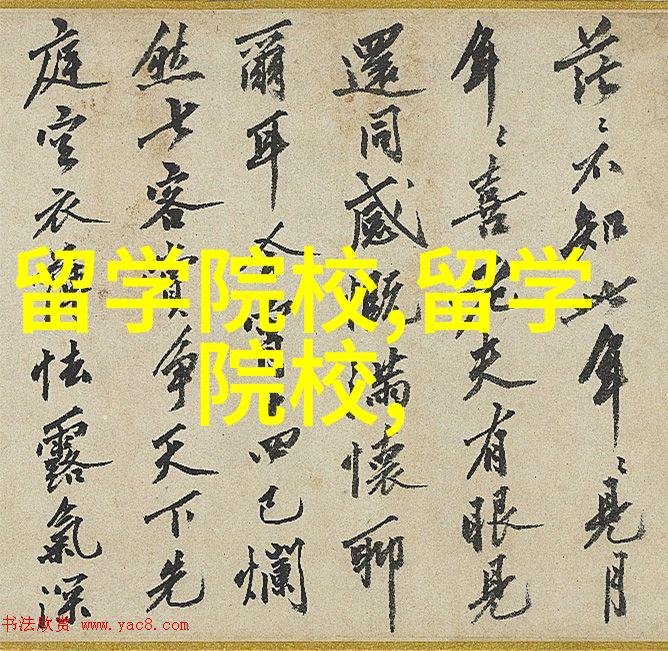 茫〻不知 年〻見月
年〻喜 夫有眼見
還同感慨滿懷聊
爾耳 四已爛
然 客賞爭天下先
庭空衣 怯露氣深
留学院校,留学
院校,
书法欣赏 www.yac8.com